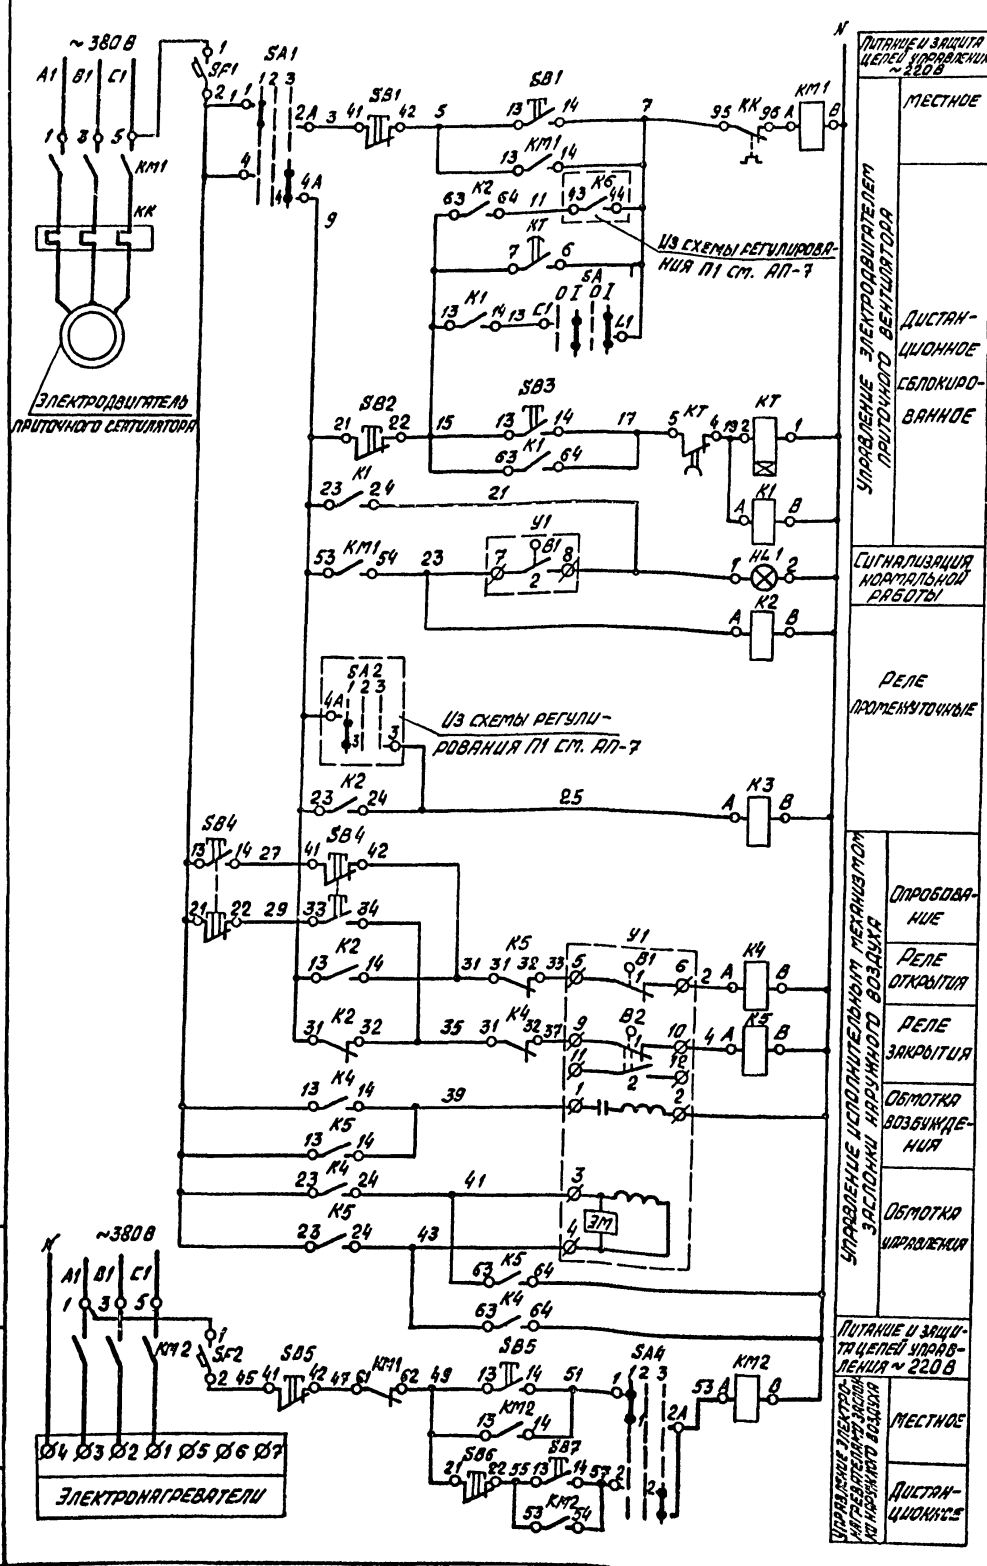 ~ 380 В
A1 B1 C1
1 3 5
KM1
KK
ЭЛЕКТРОДВИГАТЕЛЬ
ПРИТОЧНОГО
1
SF1
2
SA1
1 2 3
1 1
2A 3 41 SB1 42 5
13 SB1 14 7
95 KK 96 A KM1 B
N
4
4 4A
9
13 KM1 14
63 K2 64 11 43 K6 44
ИЗ СХЕМЫ РЕГУЛИРОВА-
НИЯ П1 СМ. АП-7
7 KT 6
SA
13 K1 14 13 C1 0 I 0 I L1
21 SB2 22 15 13 SB3 14 17 5 KT 4 19 2 KT 1
63 K1 64
A K1 B
23 K1 24 21
У1
53 KM1 54 23 7 B1 8 1 HL1 2
2
A K2 B
SA2
1 2 3
4A
3 3
ИЗ СХЕМЫ РЕГУЛИ-
РОВАНИЯ П1 СМ. АП-7
23 K2 24 25 A K3 B
SB4
13 14 27 41 SB4 42
21 22 29 33 34
У1
13 K2 14 31 31 K5 32 33 5 B1 1 6 2 A K4 B
31 K2 32 35 31 K4 32 37 9 B2 1 10 4 A K5 B
11 2 12
13 K4 14 39 1 2
13 K5 14
23 K4 24 41 3
ЭМ
23 K5 24 43 4
63 K5 64
63 K4 64
N
~380В
A1 B1 C1
1 3 5
KM2
1
SF2
2 45 41 SB5 42 47 61 KM1 62 49 13 SB5 14 51 1 SA4 1 2 3
1 2A 53 A KM2 B
13 KM2 14
21 SB6 22 55 13 SB7 14 57 2 2
53 KM2 54
4 3 2 1 5 6 7
ЭЛЕКТРОНАГРЕВАТЕЛИ
ПИТАНИЕ И ЗАЩИТА
ЦЕПЕЙ УПРАВЛЕНИЯ
~ 220 В
УПРАВЛЕНИЕ ЭЛЕКТРОДВИГАТЕЛЕМ
ПРИТОЧНОГО ВЕНТИЛЯТОРА
МЕСТНОЕ
ДИСТАН-
ЦИОННОЕ
СБЛОКИРО-
ВАННОЕ
СИГНАЛИЗАЦИЯ
НОРМАЛЬНОЙ
РАБОТЫ
РЕЛЕ
ПРОМЕЖУТОЧНЫЕ
УПРАВЛЕНИЕ ИСПОЛНИТЕЛЬНЫМ МЕХАНИЗМОМ
ЗАСЛОНКИ НАРУЖНОГО ВОЗДУХА
ОПРОБОВА-
НИЕ
РЕЛЕ
ОТКРЫТИЯ
РЕЛЕ
ЗАКРЫТИЯ
ОБМОТКА
ВОЗБУЖДЕ-
НИЯ
ОБМОТКА
УПРАВЛЕНИЯ
ПИТАНИЕ И ЗАЩИ-
ТА ЦЕПЕЙ УПРАВ-
ЛЕНИЯ ~ 220 В
УПРАВЛЕНИЕ ЭЛЕКТРО-
НАГРЕВАТЕЛЯМИ ЗАСЛОН-
КИ НАРУЖНОГО ВОЗДУХА
МЕСТНОЕ
ДИСТАН-
ЦИОННОЕ